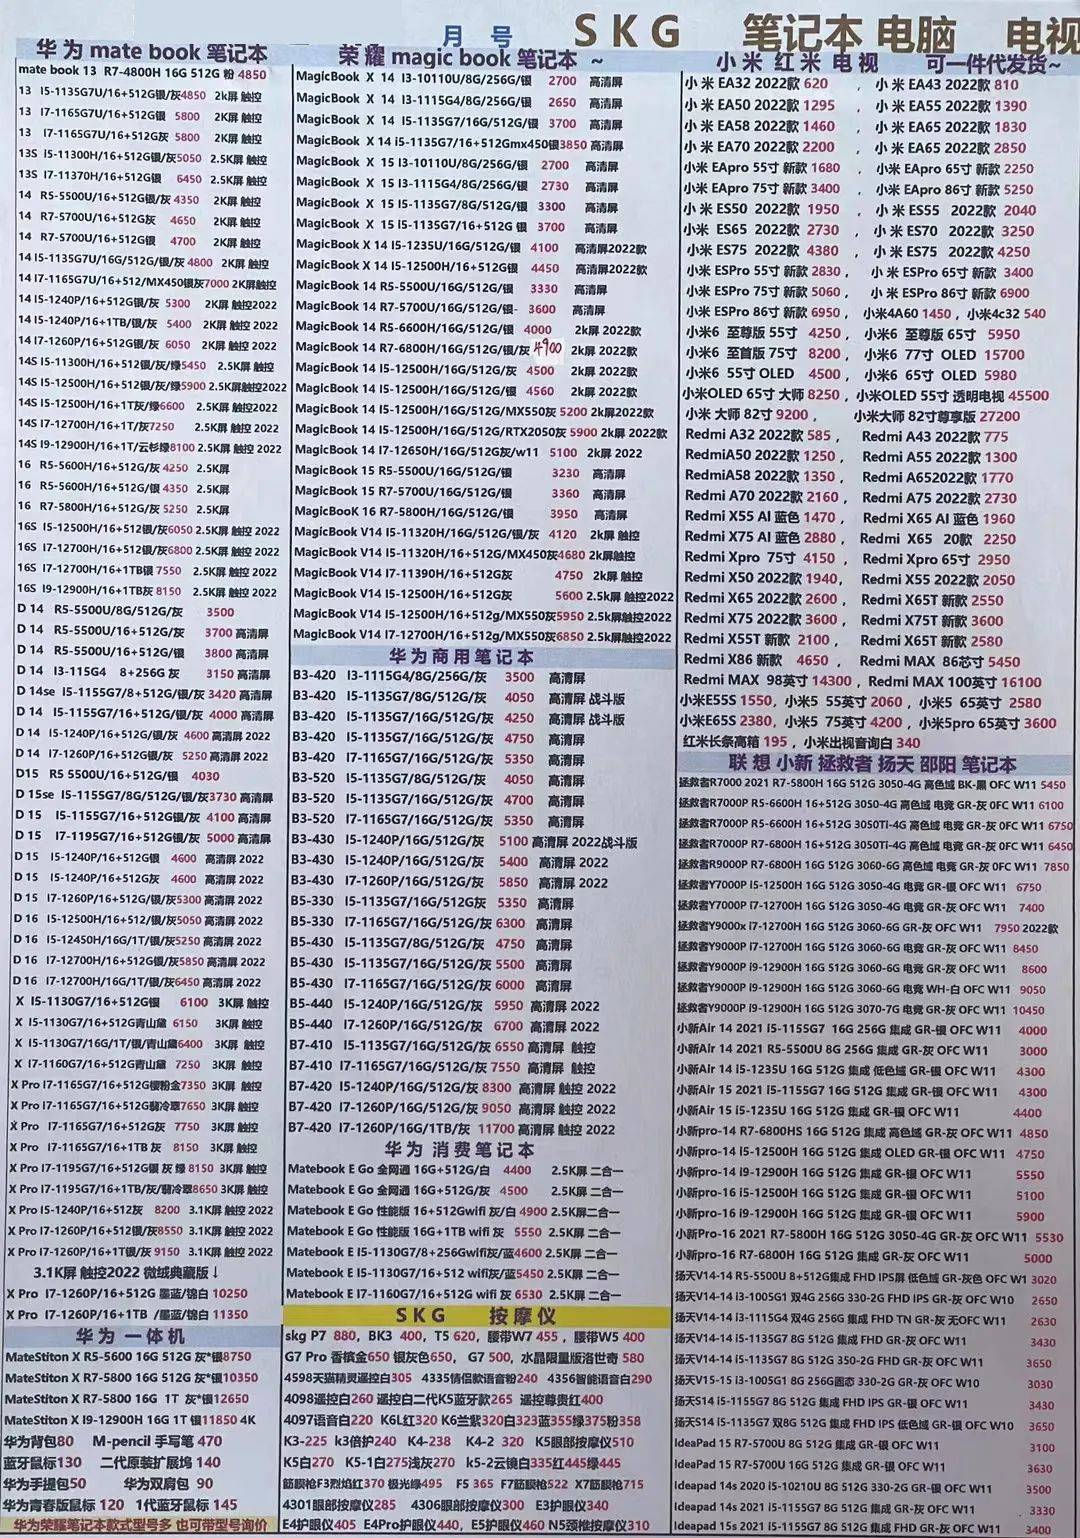 月 号 SKG 笔记本 电脑 电视
华 为 mate book 笔记本
mate book 13 R7-4800H 16G 512G 粉 4850
13 I5-1135G7U/16+512G银/灰4850 2k屏 触控
13 I7-1165G7U/16+512G银 5800 2K屏 触控
13 I7-1165G7U/16+512G灰 5800 2K屏 触控
13S I5-11300H/16+512G银/灰5050 2.5K屏 触控
13S I7-11370H/16+512G银 6450 2.5K屏 触控
14 R5-5500U/16+512G银/灰 4350 2K屏 触控
14 R7-5700U/16+512G灰 4650 2K屏 触控
14 R7-5700U/16+512G银 4700 2K屏 触控
14 I5-1135G7U/16G/512G/银/灰 4800 2K屏 触控
14 I7-1165G7U/16+512/MX450银灰7000 2K屏触控
14 I5-1240P/16+512G银/灰 5300 2K屏 触控2022
14 I5-1240P/16+1TB/银/灰 5400 2K屏 触控 2022
14 I7-1260P/16+512G/银/灰 6050 2K屏 触控 2022
14S I5-11300H/16+512G/银/灰/绿5450 2.5K屏 触控
14S I5-12500H/16+512G/银/灰/绿5900 2.5K屏触控2022
14S I5-12500H/16+1T灰/绿6600 2.5K屏 触控2022
14S I7-12700H/16+1T/灰7250 2.5K屏 触控 2022
14S I9-12900H/16+1T/云杉绿8100 2.5K屏 触控 2022
16 R5-5600H/16+512G/灰 4250 2.5K屏
16 R5-5600H/16+512G/银 4350 2.5K屏
16 R7-5800H/16+512G/灰 5250 2.5K屏
16S I5-12500H/16+512银/灰6050 2.5K屏 触控 2022
16S I7-12700H/16+512/银灰6800 2.5K屏 触控 2022
16S I7-12700H/16+1TB银 7550 2.5K屏 触控 2022
16S I9-12900H/16+1TB灰 8150 2.5K屏 触控 2022
D 14 R5-5500U/8G/512G/灰 3500
D 14 R5-5500U/16+512G/灰 3700 高清屏
D 14 R5-5500U/16+512G/银 3800 高清屏
D 14 I3-115G4 8+256G 灰 3150 高清屏
D 14se I5-1155G7/8+512G/银/灰 3420 高清屏
D 14 I5-1155G7/16+512G/银/灰 4000 高清屏
D 14 I5-1240P/16+512G/银/灰 4600 高清屏 2022
D 14 I7-1260P/16+512G/银/灰 5250 高清屏 2022
D15 R5 5500U/16+512G/银 4030
D 15se I5-1155G7/8G/512G/银/灰3730 高清屏
D 15 I5-1155G7/16+512G/银/灰 4100 高清屏
D 15 I7-1195G7/16+512G/银/灰 5000 高清屏
D 15 I5-1240P/16+512G银 4600 高清屏 2022
D 15 I5-1240P/16+512G灰 4600 高清屏 2022
D 15 I7-1260P/16+512G/银/灰5300 高清屏 2022
D 16 I5-12500H/16+512/银/灰5050 高清屏 2022
D 16 I5-12450H/16G/1T/银/灰5250 高清屏 2022
D 16 I7-12700H/16+512G银/灰5850 高清屏 2022
D 16 I7-12700H/16G/1T/银/灰6450 高清屏 2022
X I5-1130G7/16+512G银 6100 3K屏 触控
X I5-1130G7/16+512G青山黛 6150 3K屏 触控
X I5-1130G7/16G/1T/银/青山黛6400 3K屏 触控
X I7-1160G7/16+512G青山黛 7250 3K屏 触控
X Pro I7-1165G7/16+512G樱粉金7350 3K屏 触控
X Pro I7-1165G7/16+512G翡冷翠7650 3K屏 触控
X Pro I7-1165G7/16+512G灰 7750 3K屏 触控
X Pro I7-1165G7/16+1TB 灰 8150 3K屏 触控
X Pro I7-1195G7/16+512G银 灰 绿 8150 3K屏 触控
X Pro I7-1195G7/16+1TB/灰/翡冷翠8650 3K屏 触控
X Pro I5-1240P/16+512灰 8200 3.1K屏 触控 2022
X Pro I7-1260P/16+512银/灰8550 3.1K屏 触控 2022
X Pro I7-1260P/16+1T银/灰 9150 3.1K屏 触控 2022
3.1K屏 触控2022 微绒典藏版↓
X Pro I7-1260P/16+512G 墨蓝/锦白 10250
X Pro I7-1260P/16+1TB /墨蓝/锦白 11350
华为 一体机
MateStiton X R5-5600 16G 512G 灰*银8750
MateStiton X R7-5800 16G 512G 灰*银10350
MateStiton X R7-5800 16G 1T 灰*银12650
MateStiton X I9-12900H 16G 1T 银11850 4K
华为背包80 M-pencil 手写笔 470
蓝牙鼠标130 二代原装扩展坞 140
华为手提包50 华为双肩包 90
华为青春版鼠标 120 1代蓝牙鼠标 145
华为荣耀笔记本款式型号多 也可带型号询价
荣 耀 magic book 笔记本 ~
MagicBook X 14 I3-10110U/8G/256G/银 2700 高清屏
MagicBook X 14 I3-1115G4/8G/256G/银 2650 高清屏
MagicBook X 14 I5-1135G7/16G/512G/银 3700 高清屏
MagicBook X 14 i5-1135G7/16+512Gmx450银3850 高清屏
MagicBook X 15 I3-10110U/8G/256G/银 2700 高清屏
MagicBook X 15 I3-1115G4/8G/256G/银 2730 高清屏
MagicBook X 15 I5-1135G7/8G/512G/银 3300 高清屏
MagicBook X 15 I5-1135G7/16+512G 银 3700 高清屏
MagicBook X 14 I5-1235U/16G/512G/银 4100 高清屏2022款
MagicBook X 14 I5-12500H/16+512G银 4450 高清屏2022款
MagicBook 14 R5-5500U/16G/512G/银 3330 高清屏
MagicBook 14 R7-5700U/16G/512G/银- 3600 高清屏
MagicBook 14 R5-6600H/16G/512G/银 4000 2k屏 2022款
MagicBook 14 R7-6800H/16G/512G/银/灰 4900 2k屏 2022款
MagicBook 14 I5-12500H/16G/512G/灰 4500 2k屏 2022款
MagicBook 14 I5-12500H/16G/512G/银 4560 2k屏 2022款
MagicBook 14 I5-12500H/16G/512G/MX550灰 5200 2k屏2022款
MagicBook 14 I5-12500H/16G/512G/RTX2050灰 5900 2k屏 2022款
MagicBook 14 I7-12650H/16G/512G灰/w11 5100 2k屏 2022
MagicBook 15 R5-5500U/16G/512G/银 3230 高清屏
MagicBook 15 R7-5700U/16G/512G/银 3360 高清屏
MagicBooK 16 R7-5800H/16G/512G/银 3950 高清屏
MagicBook V14 I5-11320H/16G/512G/银/灰 4120 2k屏 触控
MagicBook V14 I5-11320H/16+512G/MX450灰4680 2k屏触控
MagicBook V14 I7-11390H/16+512G灰 4750 2k屏 触控
MagicBook V14 I5-12500H/16+512G灰 5600 2.5k屏 触控2022
MagicBook V14 I5-12500H/16+512g/MX550灰5950 2.5k屏触控2022
MagicBook V14 I7-12700H/16+512g/MX550灰6850 2.5k屏触控2022
华为商用笔记本
B3-420 I3-1115G4/8G/256G/灰 3500 高清屏
B3-420 I5-1135G7/8G/512G/灰 4050 高清屏 战斗版
B3-420 I5-1135G7/16G/512G/灰 4250 高清屏 战斗版
B3-420 I5-1135G7/16G/512G/灰 4750 高清屏
B3-420 I7-1165G7/16G/512G/灰 5350 高清屏
B3-520 I5-1135G7/8G/512G/灰 4050 高清屏
B3-520 I5-1135G7/16G/512G/灰 4700 高清屏
B3-520 I7-1165G7/16G/512G/灰 5350 高清屏
B3-430 I5-1240P/16G/512G/灰 5100 高清屏 2022战斗版
B3-430 I5-1240P/16G/512G/灰 5400 高清屏 2022
B3-430 I7-1260P/16G/512G/灰 5850 高清屏 2022
B5-330 I5-1135G7/16G/512G灰 5350 高清屏
B5-330 I7-1165G7/16G/512G/灰 6300 高清屏
B5-430 I5-1135G7/8G/512G/灰 4750 高清屏
B5-430 I5-1135G7/16G/512G/灰 5500 高清屏
B5-430 I7-1165G7/16G/512G/灰 6000 高清屏
B5-440 I5-1240P/16G/512G/灰 5950 高清屏 2022
B5-440 I7-1260P/16G/512G/灰 6700 高清屏 2022
B7-410 I5-1135G7/16G/512G/灰 6550 高清屏 触控
B7-410 I7-1165G7/16G/512G/灰 7550 高清屏 触控
B7-420 I5-1240P/16G/512G/灰 8300 高清屏 触控 2022
B7-420 I7-1260P/16G/512G/灰 9050 高清屏 触控 2022
B7-420 I7-1260P/16G/1TB/灰 11700 高清屏 触控 2022
华为 消费笔记本
Matebook E Go 全网通 16G+512G/白 4400 2.5K屏 二合一
Matebook E Go 全网通 16G+512G/灰 4500 2.5K屏 二合一
Matebook E Go 性能版 16+512Gwifi 灰/白 4900 2.5K屏二合一
Matebook E Go 性能版 16G+1TB wifi 灰 5550 2.5K屏 二合一
Matebook E I5-1130G7/8+256Gwifi灰/蓝4600 2.5K屏 二合一
Matebook E I5-1130G7/16+512 wifi灰/蓝5450 2.5K屏 二合一
Matebook E I7-1160G7/16+512G wifi 灰 6530 2.5K屏 二合一
SKG 按摩仪
skg P7 880, BK3 400, T5 620, 腰带W7 455 , 腰带W5 400
G7 Pro 香槟金650 银灰色650, G7 500, 水晶限量版洛世奇 580
4598天猫精灵遥控白305 4335情侣款语音粉240 4356智能语音白290
4098遥控白260 遥控白二代K5蓝牙款265 遥控尊贵红400
4097语音白220 K6L红320 K6兰紫320白323蓝355绿375粉358
K3-225 k3倍护240 K4-238 K4-2 320 K5眼部按摩仪510
K5白270 K5-1白275浅灰270 k5-2云镜白335红445绿445
筋膜枪F3烈焰红370 极光绿495 F5 365 F7筋膜枪522 X7筋膜枪715
4301眼部按摩仪285 4306眼部按摩仪300 E3护眼仪340
E4护眼仪405 E4Pro护眼仪440, E5护眼仪460 N5颈椎按摩仪310
小米 红米 电视 可一件代发货~
小 米 EA32 2022款 620 , 小 米 EA43 2022款 810
小 米 EA50 2022款 1295 , 小 米 EA55 2022款 1390
小 米 EA58 2022款 1460 , 小 米 EA65 2022款 1830
小 米 EA70 2022款 2200 , 小 米 EA65 2022款 2850
小 米 EApro 55寸 新款 1680 , 小 米 EApro 65寸 新款 2250
小 米 EApro 75寸 新款 3400 , 小 米 EApro 86寸 新款 5250
小 米 ES50 2022款 1950 , 小 米 ES55 2022款 2040
小 米 ES65 2022款 2730 , 小 米 ES70 2022款 3250
小 米 ES75 2022款 4380 , 小 米 ES75 2022款 4250
小 米 ESPro 55寸 新款 2830 , 小 米 ESPro 65寸 新款 3400
小 米 ESPro 75寸 新款 5060 , 小 米 ESPro 86寸 新款 6900
小 米 ESPro 86寸 新款 6950 , 小米4A60 1450 , 小米4c32 540
小米6 至尊版 55寸 4250 , 小米6 至尊版 65寸 5950
小米6 至首版 75寸 8200 , 小米6 77寸 OLED 15700
小米6 55寸 OLED 4500 , 小米6 65寸 OLED 5980
小米OLED 65寸 大师 8250 , 小米OLED 55寸 透明电视 45500
小米 大师 82寸 9200 , 小米大师 82寸尊享版 27200
Redmi A32 2022款 585 , Redmi A43 2022款 775
RedmiA50 2022款 1250 , Redmi A55 2022款 1300
RedmiA58 2022款 1350 , Redmi A652022款 1770
Redmi A70 2022款 2160 , Redmi A75 2022款 2730
Redmi X55 AI 蓝色 1470 , Redmi X65 AI 蓝色 1960
Redmi X75 AI 蓝色 2880 , Redmi X65 20款 2250
Redmi Xpro 75寸 4150 , Redmi Xpro 65寸 2950
Redmi X50 2022款 1940, Redmi X55 2022款 2050
Redmi X65 2022款 2600 , Redmi X65T 新款 2550
Redmi X75 2022款 3600 , Redmi X75T 新款 3600
Redmi X55T 新款 2100 , Redmi X65T 新款 2580
Redmi X86 新款 4650 , Redmi MAX 86芯寸 5450
Redmi MAX 98英寸 14300 , Redmi MAX 100英寸 16100
小米E55S 1550, 小米5 55英寸 2060 , 小米5 65英寸 2580
小米E65S 2380, 小米5 75英寸 4200 , 小米5pro 65英寸 3600
红米长条高箱 195 , 小米出视音询白 340
联想 小新 拯救者 扬天 邵阳 笔记本
拯救者R7000 2021 R7-5800H 16G 512G 3050-4G 高色域 BK-黑 OFC W11 5450
拯救者R7000P R5-6600H 16+512G 3050-4G 高色域 电竞 GR-灰 0FC W11 6100
拯救者R7000P R5-6600H 16+512G 3050TI-4G 高色域 电竞 GR-灰 0FC W11 6750
拯救者R7000P R7-6800H 16+512G 3050TI-4G 高色域 电竞 GR-灰 OFC W11 6450
拯救者R9000P R7-6800H 16G 512G 3060-6G 高色域 电竞 GR-灰 0FC W11 7850
拯救者Y7000P I5-12500H 16G 512G 3050-4G 电竞 GR-银 OFC W11 6750
拯救者Y7000P I7-12700H 16G 512G 3050-4G 电竞 GR-灰 OFC W11 7400
拯救者Y9000x i7-12700H 16G 512G 3060-6G 电竞 GR-灰 OFC W11 7950 2022款
拯救者Y9000P I7-12700H 16G 512G 3060-6G 电竞 GR-灰 OFC W11 8450
拯救者Y9000P I9-12900H 16G 512G 3060-6G 电竞 GR-灰 OFC W11 8600
拯救者Y9000P I9-12900H 16G 512G 3060-6G 电竞 WH-白 OFC W11 9050
拯救者Y9000P I9-12900H 16G 512G 3070-7G 电竞 GR-灰 OFC W11 10450
小新Air 14 2021 I5-1155G7 16G 256G 集成 GR-银 OFC W11 4000
小新Air 14 2021 R5-5500U 8G 256G 集成 GR-灰 OFC W11 3000
小新Air 14 i5-1235U 16G 512G 集成 低色域 GR-银 OFC W11 4300
小新Air 15 2021 i5-1155G7 16G 512G 集成 GR-银 OFC W11 4300
小新Air 15 i5-1235U 16G 512G 集成 GR-银 OFC W11 4400
小新pro-14 R7-6800HS 16G 512G 集成 高色域 GR-银 OFC W11 4850
小新pro-14 i5-12500H 16G 512G 集成 OLED GR-银 OFC W11 4750
小新pro-14 i9-12900H 16G 512G 集成 GR-银 OFC W11 5550
小新pro-16 i5-12500H 16G 512G 集成 GR-银 OFC W11 5100
小新pro-16 i9-12900H 16G 512G 集成 GR-银 OFC W11 5900
小新Pro-16 2021 R7-5800H 16G 512G 3050-4G GR-灰 OFC W11 5530
小新pro-16 R7-6800H 16G 512G 集成 GR-灰 OFC W11 5000
扬天V14-14 R5-5500U 8+512G集成 FHD IPS屏 低色域 GR-灰色 OFC W1 3020
扬天V14-14 i3-1005G1 双4G 256G 330-2G FHD IPS GR-灰 OFC W10 2650
扬天V14-14 i3-1115G4 双4G 256G 集成 FHD TN GR-灰 无OFC W11 2630
扬天V14-14 i5-1135G7 8G 512G 集成 FHD GR-灰 OFC W11 3430
扬天V14-14 i5-1135G7 8G 512G 350-2G FHD GR-灰 OFC W11 3650
扬天V15-15 i3-1005G1 8G 256G固态 330-2G GR-灰 OFC W10 3030
扬天S14 i5-1155G7 8G 512G 集成 FHD GR-银 OFC W11 3430
扬天S14 i5-1135G7 双8G 512G 集成 FHD IPS 低色域 GR-银 OFC W10 3650
IdeaPad 15 R7-5700U 8G 512G 集成 GR-银 OFC W11 3100
IdeaPad 15 R7-5700U 16G 512G 集成 GR-银 OFC W11 3630
Ideapad 14s 2020 i5-10210U 8G 512G 330-2G GR-银 OFC W11 3500
Ideapad 14s 2021 i5-1155G7 8G 512G 集成 GR-灰 OFC W11 3330
Ideapad 15s 2021 i5-1155G7 8G 512G 集成 GR-灰 OFC W11 3400